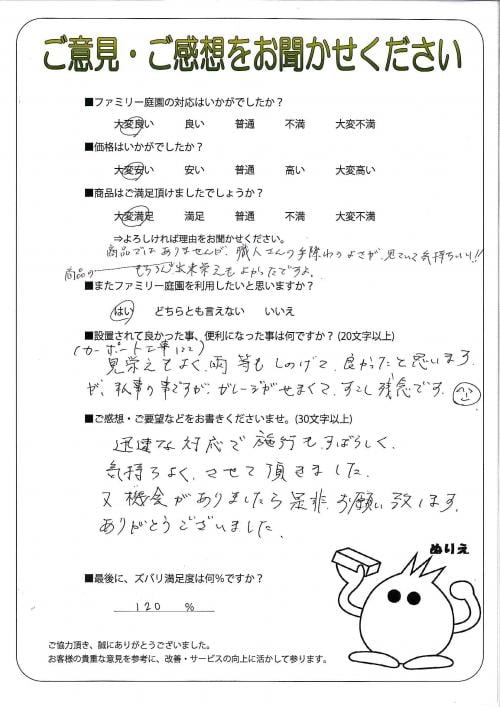 ご意見・ご感想をお聞かせください
■ファミリー庭園の対応はいかがでしたか？
大変良い　良い　普通　不満　大変不満
■価格はいかがでしたか？
大変安い　安い　普通　高い　大変高い
■商品はご満足頂けましたでしょうか？
大変満足　満足　普通　不満　大変不満
⇒よろしければ理由をお聞かせください。
商品ではありませんが、職人さんの手際のよさが、見ていて気持ちいい!!
商品の　もちろん出来栄えもよかったですよ。
■またファミリー庭園を利用したいと思いますか？
はい　どちらとも言えない　いいえ
■設置されて良かった事、便利になった事は何ですか？(20文字以上)
(カーポート工事にて)
見栄えもよく、雨等もしのげて、良かったと思います
が、私事の事ですが、ガレージがせまくて、すこし残念です。
■ご感想・ご要望などをお書きくださいませ。(30文字以上)
迅速な対応で施行もすばらしく、
気持ちよく、させて頂きました。
又機会がありましたら是非、お願い致します。
ありがとうございました。
ぬりえ
■最後に、ズバリ満足度は何％ですか？
120　％
ご協力頂き、誠にありがとうございました。
お客様の貴重な意見を参考に、改善・サービスの向上に活かして参ります。